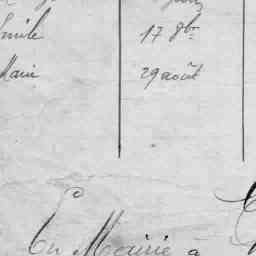 Emile 17 9bre
Marie 29 août
En Mairie à